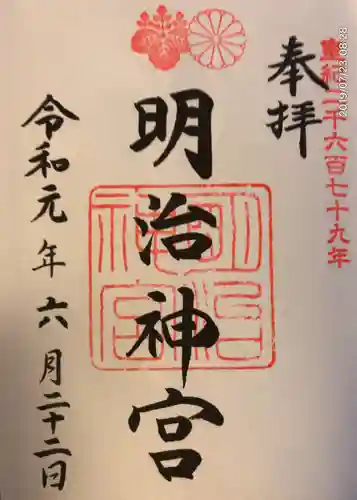 奉拝
皇紀二千六百七十九年
明治神宮
明治神宮
令和元年六月二十二日
2019/07/23 08:28